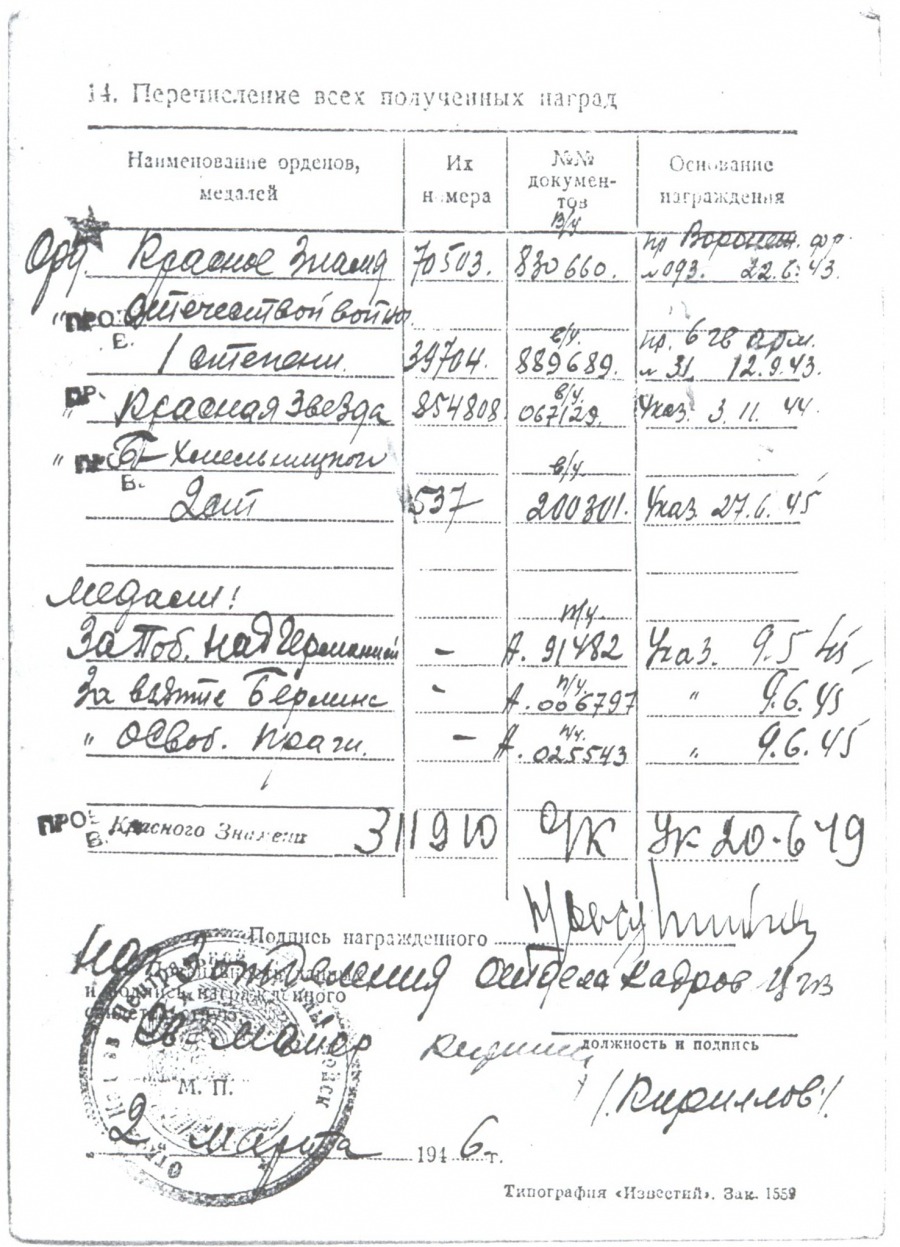 14. Перечисление всех полученных наград
Наименование орденов, медалей
Их номера
№№ документов
Основание награждения
в/у
Орд Красное Знамя 70503. 830660. пр Воронеж. фр.
№ 093. 22.6.43.
" Отечествой войны
ПРОВ.
1 степени. 39704. в/у. 889689. пр. 6 гв арм.
№ 31 12.9.43.
" Красная Звезда 854808 в/у. 067129. Указ. 3.11.44.
" Б-Хмельницкого
В.
2 ст 537 в/у. 200301. Указ 27.6.45
Медали!
За Поб. над Германией – п/у. А. 91482 Указ. 9.5 45
За взятие Берлина - п/у. А. 006797 " 9.6.45
" Освоб. Праги. – п/у. А. 025543 " 9.6.45
ПРОВ. Красного Знамени 311910 о/к Ук 20.6 49
Подпись награжденного
Нач. отделения отдела кадров ЦГВ
и подпись награжденного
Гв. Майор
должность и подпись
М. П.
(Кириллов).
2 марта 1946 г.
Типография «Известий». Зак. 1559